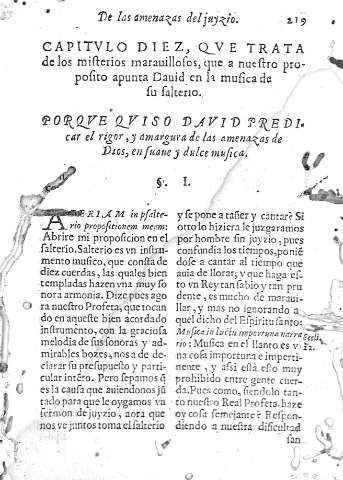 De las amenazas del juyzio. 219
CAPITVLO DIEZ, QVE TRATA
de los misterios marauillosos, que a nuestro pro-
posito apunta Dauid en la musica de
su salterio.
PORQVE QVISO DAVID PREDI-
car el rigor, y amargura de las amenazas de
Dios, en suaue y dulce musica.
§. I.
APERIAM in psalte-
rio propositionem meam:
Abrire mi proposicion en el
salterio. Salterio es vn instru-
mento musico, que consta de
diez cuerdas, las quales bien
templadas hazen vna muy so
nora armonia. Dize pues ago
ra nuestro Profeta, que tocan
do en aqueste bien acordado
instrumento, con la graciosa
melodia de sus sonoras y ad-
mirables bozes, nos a de de-
clarar su presupuesto y parti-
cular intēto. Pero sepamos q̄
es la causa que auiendonos jū
tado para que le oygamos vn
sermon de juyzio, aora que
nos ve juntos toma el salterio
y se pone a tañer y cantar? Si
otro lo hiziera le juzgaramos
por hombre sin juyzio, pues
confundia los tiempos, poniē
dose a cantar al tiempo que
auia de llorar; y que haga es-
to vn Rey tan sabio y tan pru
dente, es mucho de maraui-
llar, y mas no ignorando a
quel dicho del Espiritu santo:
Musica in luctu importuna narra
tio: Musica en el llanto es v-
na cosa importuna e imperti-
nente, y assi està esso muy
prohibido entre gente cuer-
da. Pues como, siendolo tan-
to nuestro Real Profeta, haze
oy cosa semejante? Respon-
diendo a nuestra dificultad
san
Eccli.
22.